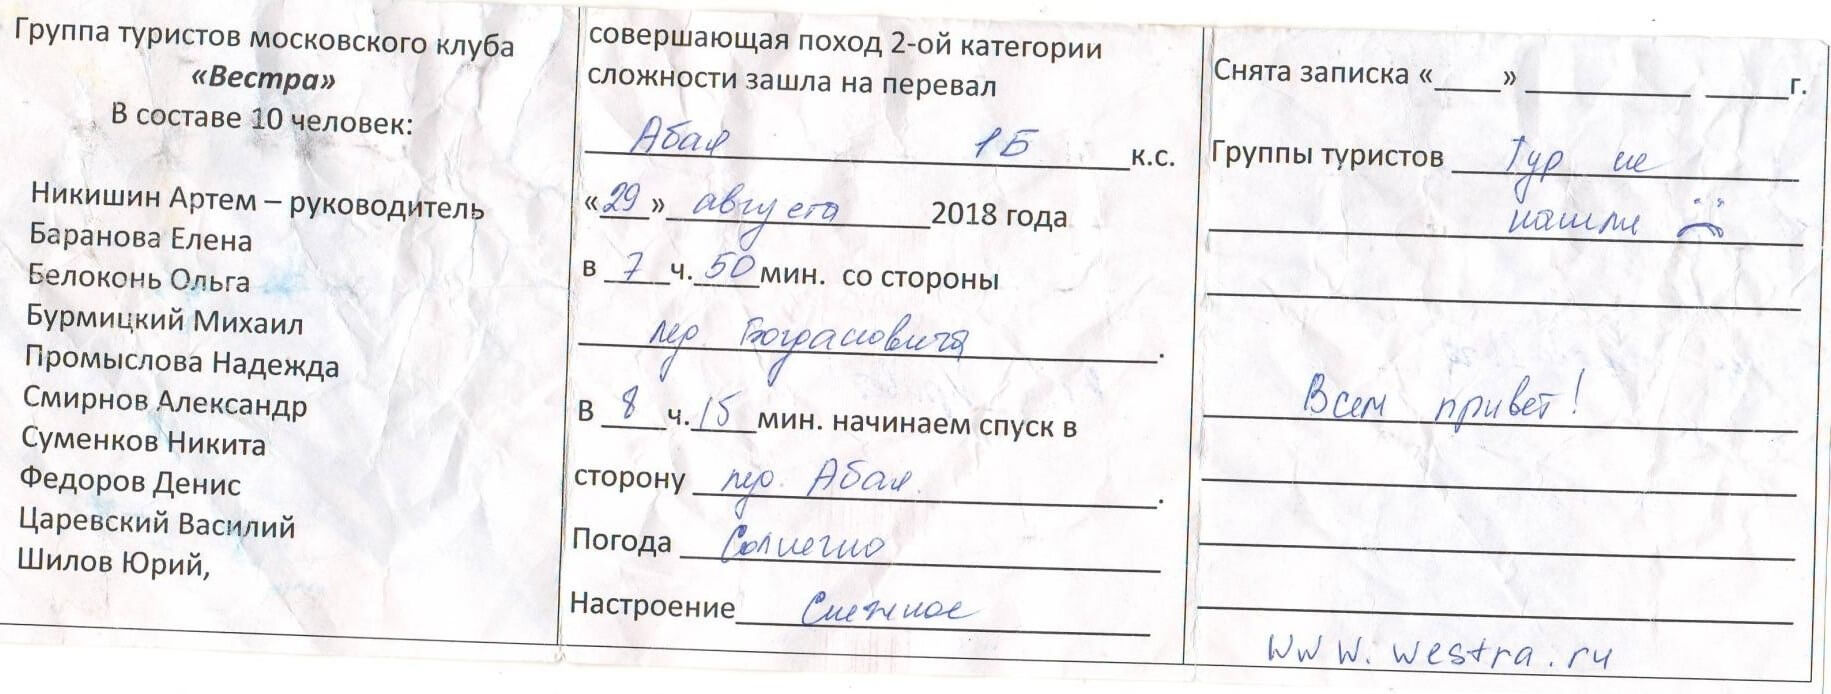 Группа туристов московского клуба
«Вестра»
В составе 10 человек:
Никишин Артем – руководитель
Баранова Елена
Белоконь Ольга
Бурмицкий Михаил
Промыслова Надежда
Смирнов Александр
Суменков Никита
Федоров Денис
Царевский Василий
Шилов Юрий,
совершающая поход 2-ой категории
сложности зашла на перевал
Абая 1Б к.с.
«29» августа 2018 года
в 7 ч. 50 мин. со стороны
пер. Богдановича.
В 8 ч. 15 мин. начинаем спуск в
сторону пер. Абая.
Погода Солнечно
Настроение Снежное
Снята записка «____» __________ _____г.
Группы туристов Тур не
нашли
Всем привет!
www.westra.ru